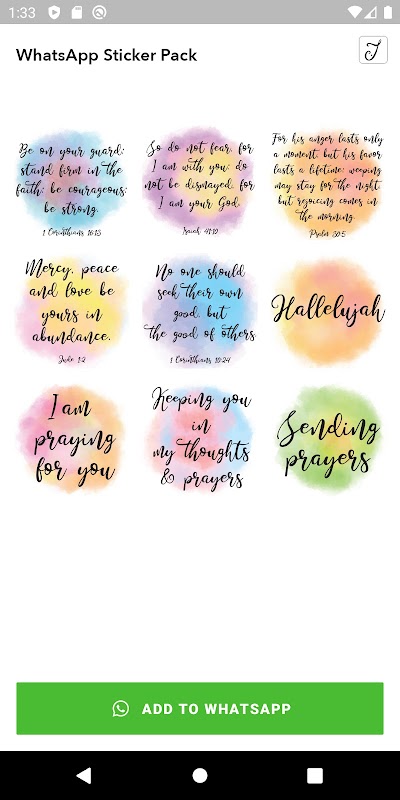 1:33
WhatsApp Sticker Pack
J
Be on your guard;
stand firm in the
faith; be courageous;
be strong.
1 Corinthians 16:13
So do not fear, for
I am with you; do
not be dismayed, for
I am your God.
Isaiah 41:10
For his anger lasts only
a moment, but his favor
lasts a lifetime; weeping
may stay for the night,
but rejoicing comes in
the morning.
Psalm 30:5
Mercy, peace
and love be
yours in
abundance.
Jude 1:2
No one should
seek their own
good, but
the good of others
1 Corinthians 10:24
Hallelujah
I am
praying
for you
Keeping you
in
my thoughts
& prayers
Sending
prayers
ADD TO WHATSAPP